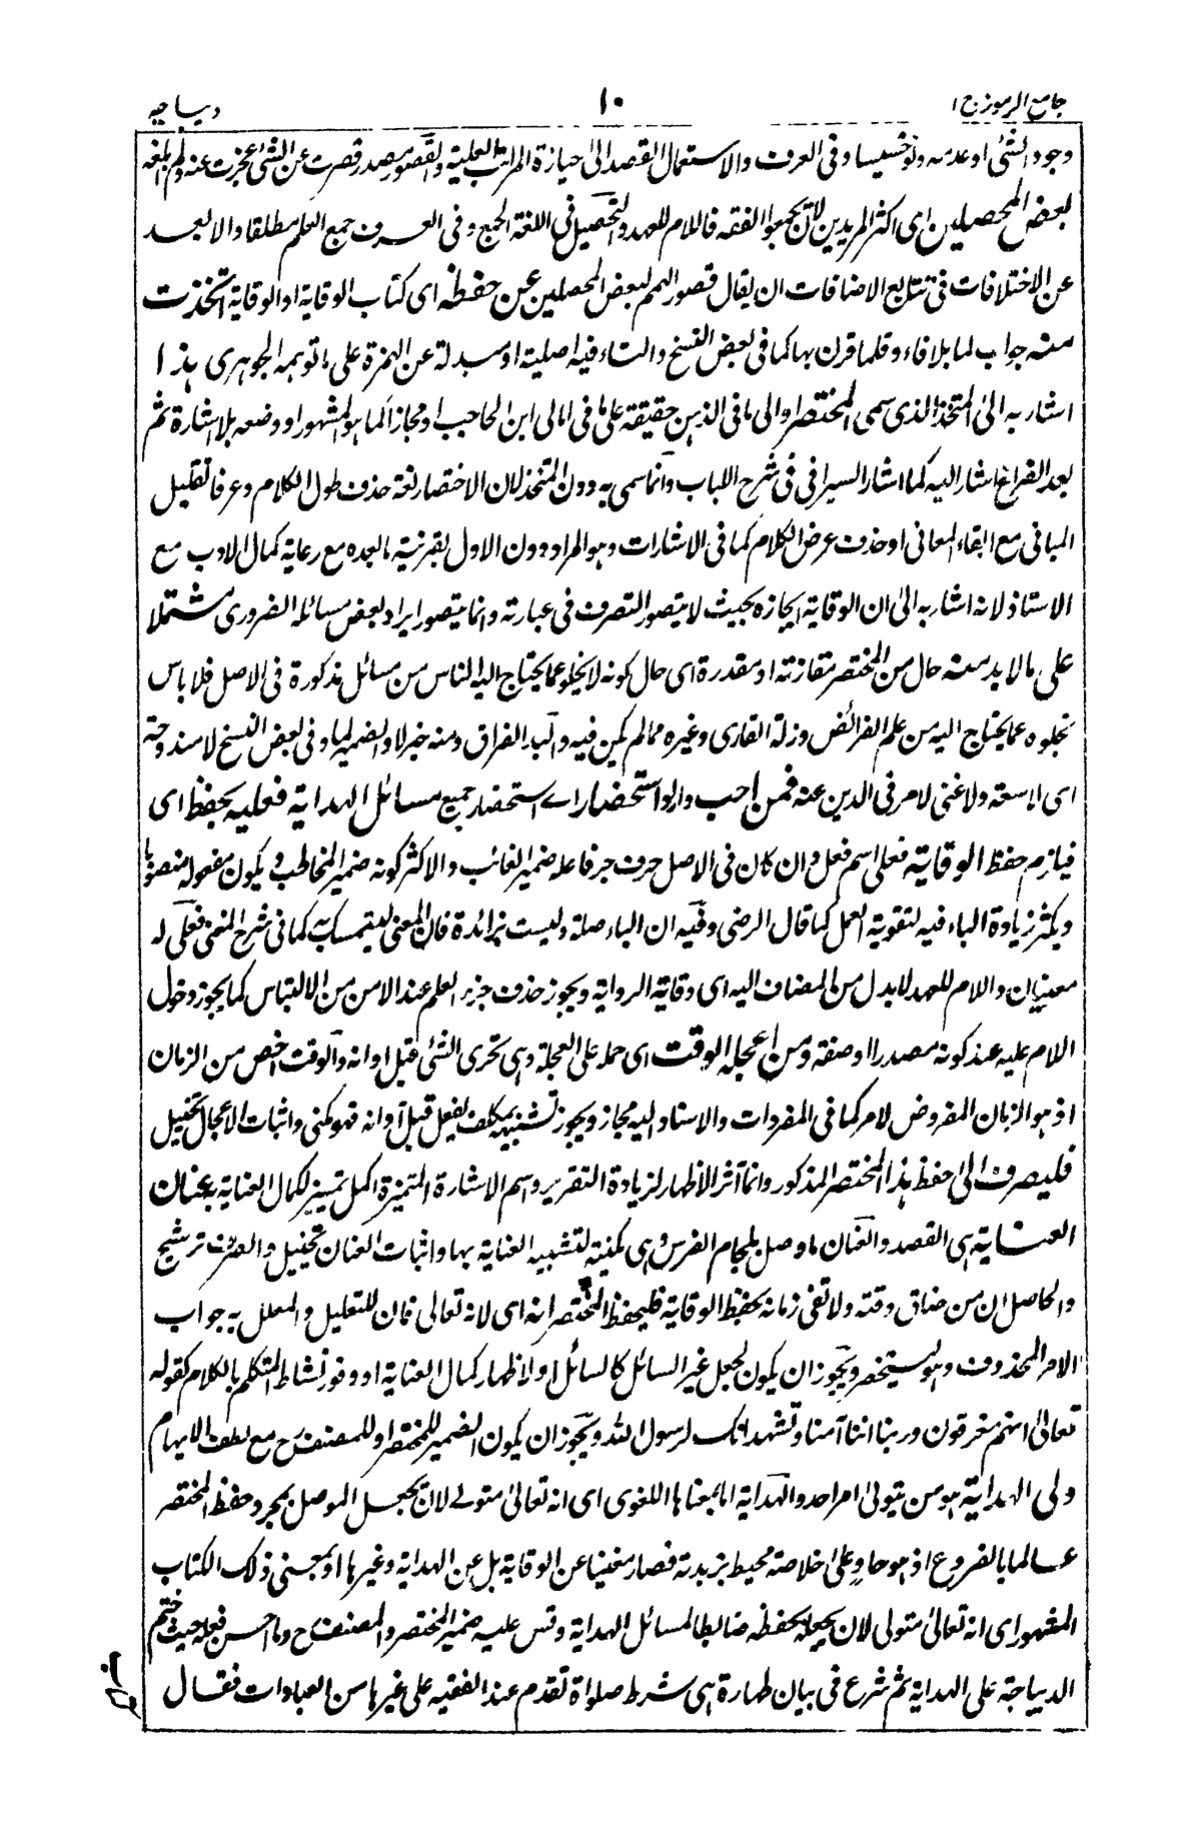 جامع الرموز ج ١
١٠
ديباجه
وجود الشئ او عدمه ولو خسيسا وفى العرف والاستعمال القصد الى حيازة المراتب العلية والقصور مصدر قصرت عن الشئ عجزت عنه ولم ابلغه
لبعض المحصلين اى اكثر المريدين لان يجمعوا الفقه فاللام للعهد والتحصيل فى اللغة الجمع وفى العرف جمع العلم مطلقا والابعد
عن الاختلافات فى تتابع الاضافات ان يقال قصور الهمم لبعض المحصلين عن حفظه اى كتاب الوقاية او الوقاية اتخذت
منه جواب لما بلا فاء وقلما قرن بها كما فى بعض النسخ والتاء فيه اصلية او مبدلة عن الهمزة على ما توهمه الجوهرى هذا
اشار به الى المتخذ الذى سمى المختصر او الى ما فى الذهن حقيقة على ما فى امالى ابن الحاجب او مجازا كما هو المشهور او وضعه بلا اشارة ثم
بعد الفراغ اشار اليه كما اشار السيرافى فى شرح اللباب وانما سمى به دون المتخذ لان الاختصار لغة حذف طول الكلام وعرفا تقليل
المبانى مع ابقاء المعانى او حذف عرض الكلام كما فى الاشارات وهو المراد دون الاول بقرينة ما بعده مع رعاية كمال الادب مع
الاستاذ لانه اشار به الى ان الوقاية ايجازه بحيث لا يتصور التصرف فى عبارته وانما يتصور ايراد بعض مسائله الضرورى مشتملا
على ما لا بد منه حال من المختصر مقارنة او مقدرة اى حال كونه لا يخلو عما يحتاج اليه الناس من مسائل مذكورة فى الاصل فلا باس
بخلوه عما يحتاج اليه من علم الفرائض وزلة القارى وغيره مما لم يكن فيه والبد الفراق ومنه خبر لا والضمير لما وفى بعض النسخ لا مندوحة
اى لا سعة ولا غنى لامر فى الدين عنه فمن احب واراد استحضار اے استحضار جميع مسائل الهداية فعليه بحفظ اى
فيلزم حفظ الوقاية فعلى اسم فعل وان كان فى الاصل حرف جر فاعله ضمير الغائب والاكثر كونه ضمير المخاطب ويكون مفعوله منصوبا
ويكثر زيادة الباء فيه لتقوية العمل كما قال الرضى وفيه ان الباء صلة وليست بزائدة فان المعنى ليتمسك به كما فى شرح المغنى فعلى له
معنيان واللام للعهد لا بدل من المضاف اليه اى وقاية الرواية ويجوز حذف جزء العلم عند الامن من الالتباس كما يجوز دخول
اللام عليه عند كونه مصدرا او صفة ومن اعجله الوقت اى حمله على العجلة وهى تحرى الشئ قبل اوانه والوقت اخص من الزمان
اذ هو الزمان المفروض لامر كما فى المفردات والاسناد اليه مجاز ويجوز تشبيهه بمكلف يفعل قبل اوانه فهو كنى واثبات الاعجال تخييل
فليصرف الى حفظ هذا المختصر المذكور وانما آثر الاظهار لزيادة التقرير واسم الاشارة المتميزة اكمل تمييز لكمال العناية بعنان
العناية هى القصد والعنان ما وصل بلجام الفرس وهى كنية لتشبيه العناية بها واثبات العنان تخييل والصرف ترشيح
والحاصل ان من ضاق وقته ولا تفى زمانه بحفظ الوقاية فليحفظ المختصر انه اى لانه تعالى فان للتعليل والمعلل به جواب
الامر المحذوف وهو ليستحضر ويجوز ان يكون لجعل غير السائل كالسائل او لاظهار كمال العناية او وفور نشاط المتكلم بالكلام كقوله
تعالى انهم مغرقون وربنا اننا آمنا ونشهد انك لرسول الله ويجوز ان يكون الضمير للمختصر او للمصنف رح مع لطف الايهام
ولى الهداية هو من يتولى امر احد والهداية اما بمعناها اللغوى اى انه تعالى متولے لان يجعل الموصل بمجرد حفظ المختصر
عالما بالفروع اذ هو حاوٍ على خلاصة محيط بزبدته فصار مغنيا عن الوقاية بل عن الهداية وغيرها او بمعنى ذلك الكتاب
المشهور اى انه تعالى متولى لان يجعله بحفظه ضابطا لمسائل الهداية وقس عليه ضمير المختصر والمصنف رح وما احسن فعله حيث ختم
الديباجة على الهداية ثم شرع فى بيان طهارة هى شرط صلواة تقدم عند الفقيه على غيرها من العبادات فقال